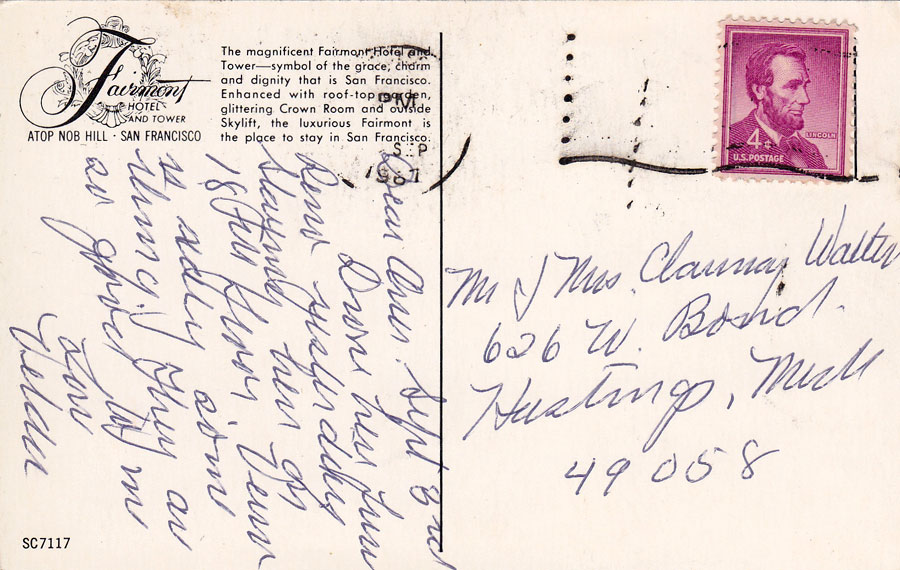 Fairmont
HOTEL
AND TOWER
ATOP NOB HILL · SAN FRANCISCO
The magnificent Fairmont Hotel and
Tower—symbol of the grace, charm
and dignity that is San Francisco.
Enhanced with roof-top garden,
glittering Crown Room and outside
Skylift, the luxurious Fairmont is
the place to stay in San Francisco.
PM
SEP
LINCOLN
4¢
U.S. POSTAGE
Dear Sept 3rd
Drove here from
Reno yesterday
Staying here on
18th floor
is
things. They are
so good to me
Love
Velda
Mr & Mrs. Walter
626 W. Bond.
Hastings, Mich
49058
SC7117